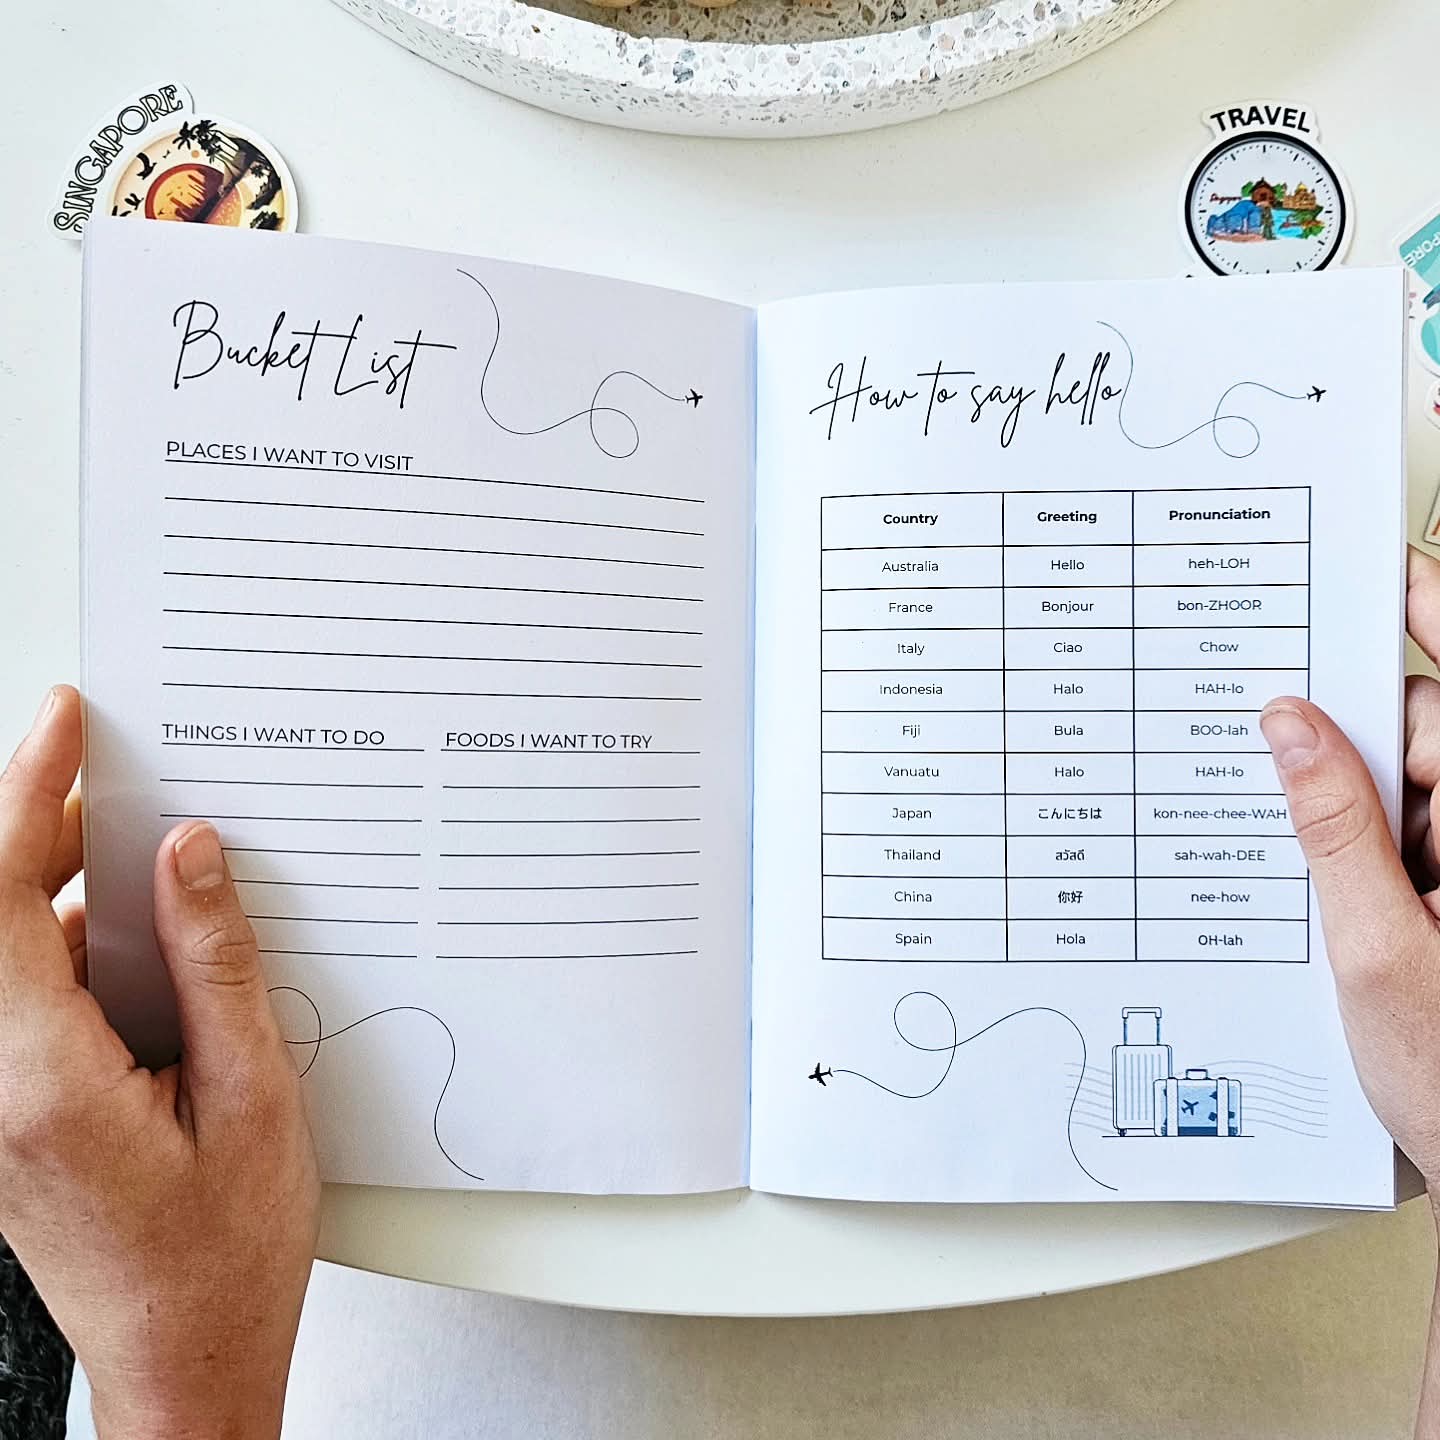 SINGAPORE
TRAVEL
Bucket List
PLACES I WANT TO VISIT
THINGS I WANT TO DO
FOODS I WANT TO TRY
How to say hello
Country Greeting Pronunciation
Australia Hello heh-LOH
France Bonjour bon-ZHOOR
Italy Ciao Chow
Indonesia Halo HAH-lo
Fiji Bula BOO-lah
Vanuatu Halo HAH-lo
Japan こんにちは kon-nee-chee-WAH
Thailand สวัสดี sah-wah-DEE
China 你好 nee-how
Spain Hola OH-lah